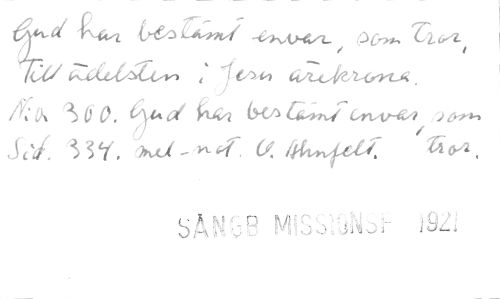 Gud har bestämt envar, som tror,
till ädelsten i Jesu ärekrona.
N:o 300. Gud har bestämt envar, som
Sid. 334. mel-not. O. Ahnfelt. tror.
SÅNGB MISSIONSF 1921